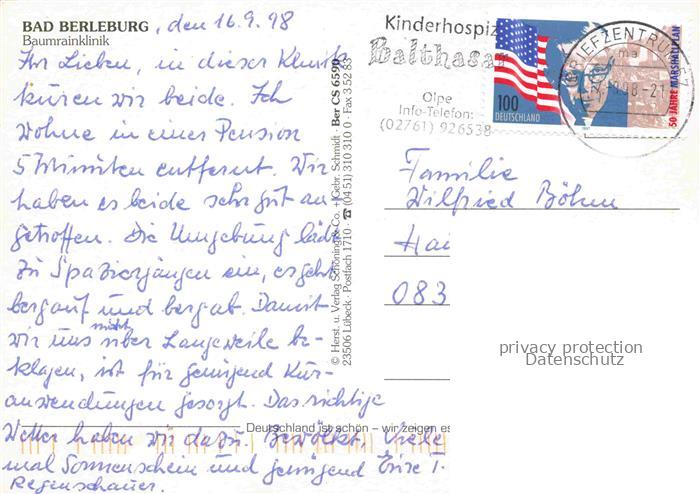 BAD BERLEBURG, den 16.9.98
Baumrainklinik
Ihr Lieben, in dieser Klinik
kuren wir beide. Ich
wohne in einer Pension
5 Minuten entfernt. Wir
haben es beide sehr gut an
getroffen. Die Umgebung läd
zu Spaziergängen ein, es geht
bergauf und bergab. Damit
wir uns nicht über Langeweile be-
klagen, ist für genügend Kur-
anwendungen gesorgt. Das richtige
Wetter haben wir dazu. Bewölkt,
mal Sonnenschein und genügend
Regenschauer.
Deutschland ist schön – wir zeigen es
© Herst. u. Verlag Schöning & Co. + Gebr. Schmidt · Ber CS 6590
23506 Lübeck · Postfach 1710 · ☎ (04 51) 310 310 0 · Fax 3 52 83
Kinderhospiz
Balthasar
Olpe
Info-Telefon:
(02761) 926538
100
DEUTSCHLAND
50 JAHRE MARSHALLPLAN
BRIEFZENTRUM
Familie
Wilfried Böhm
Hai
083
privacy protection
Datenschutz